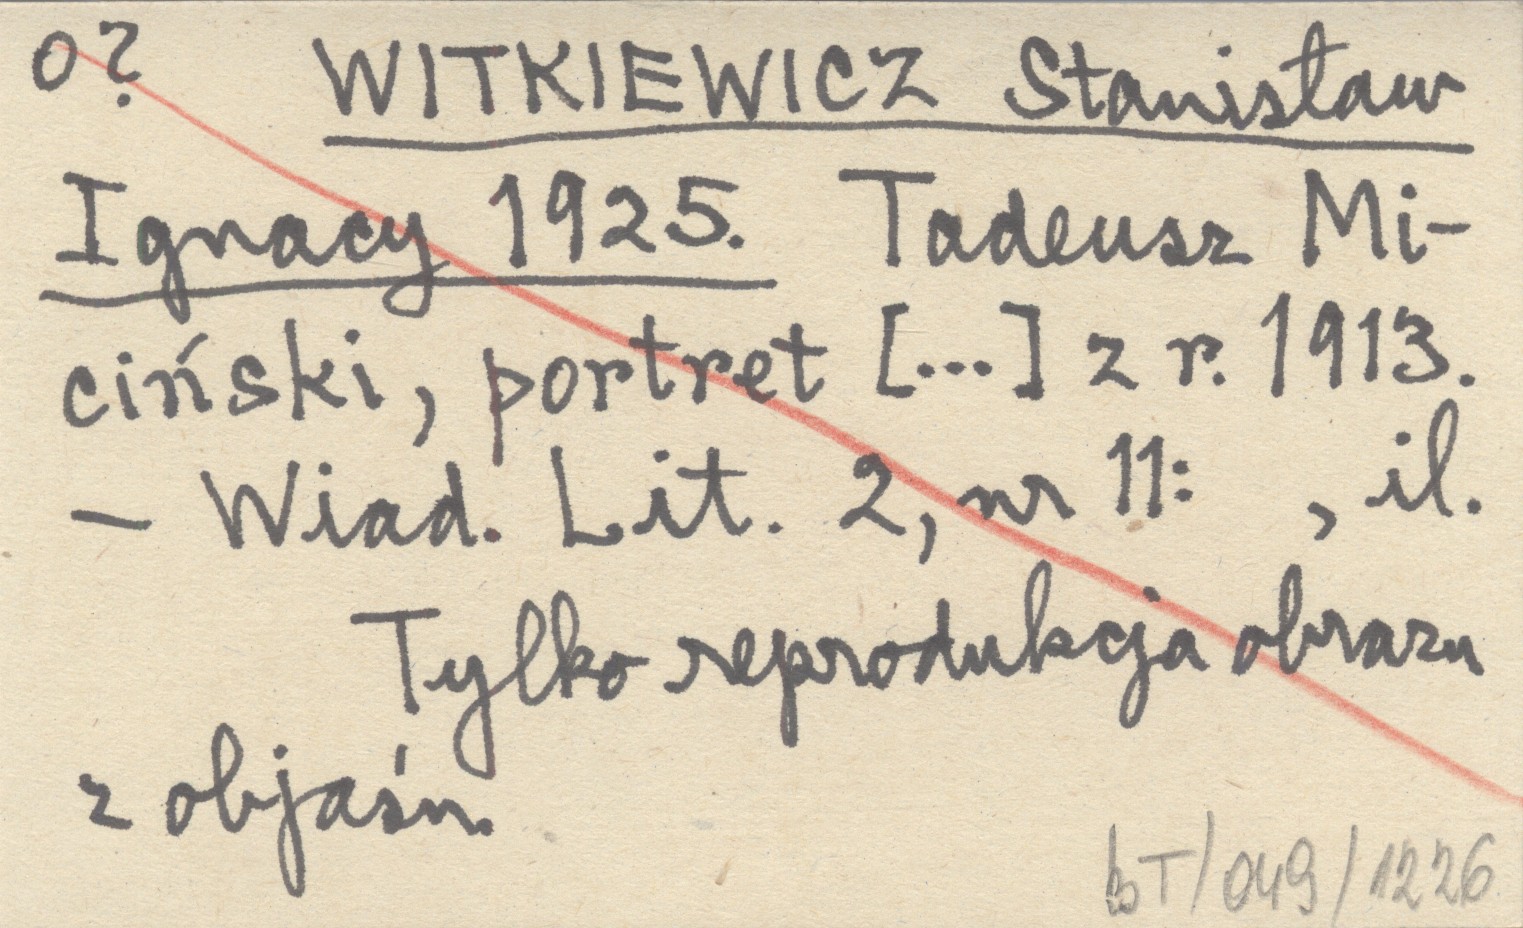 o? WITKIEWICZ Stanisław
Ignacy 1925. Tadeusz Mi-
ciński, portret [...] z r. 1913.
— Wiad. Lit. 2, nr 11: , il.
Tylko reprodukcja obrazu
z objaśn.
bT/049/1226